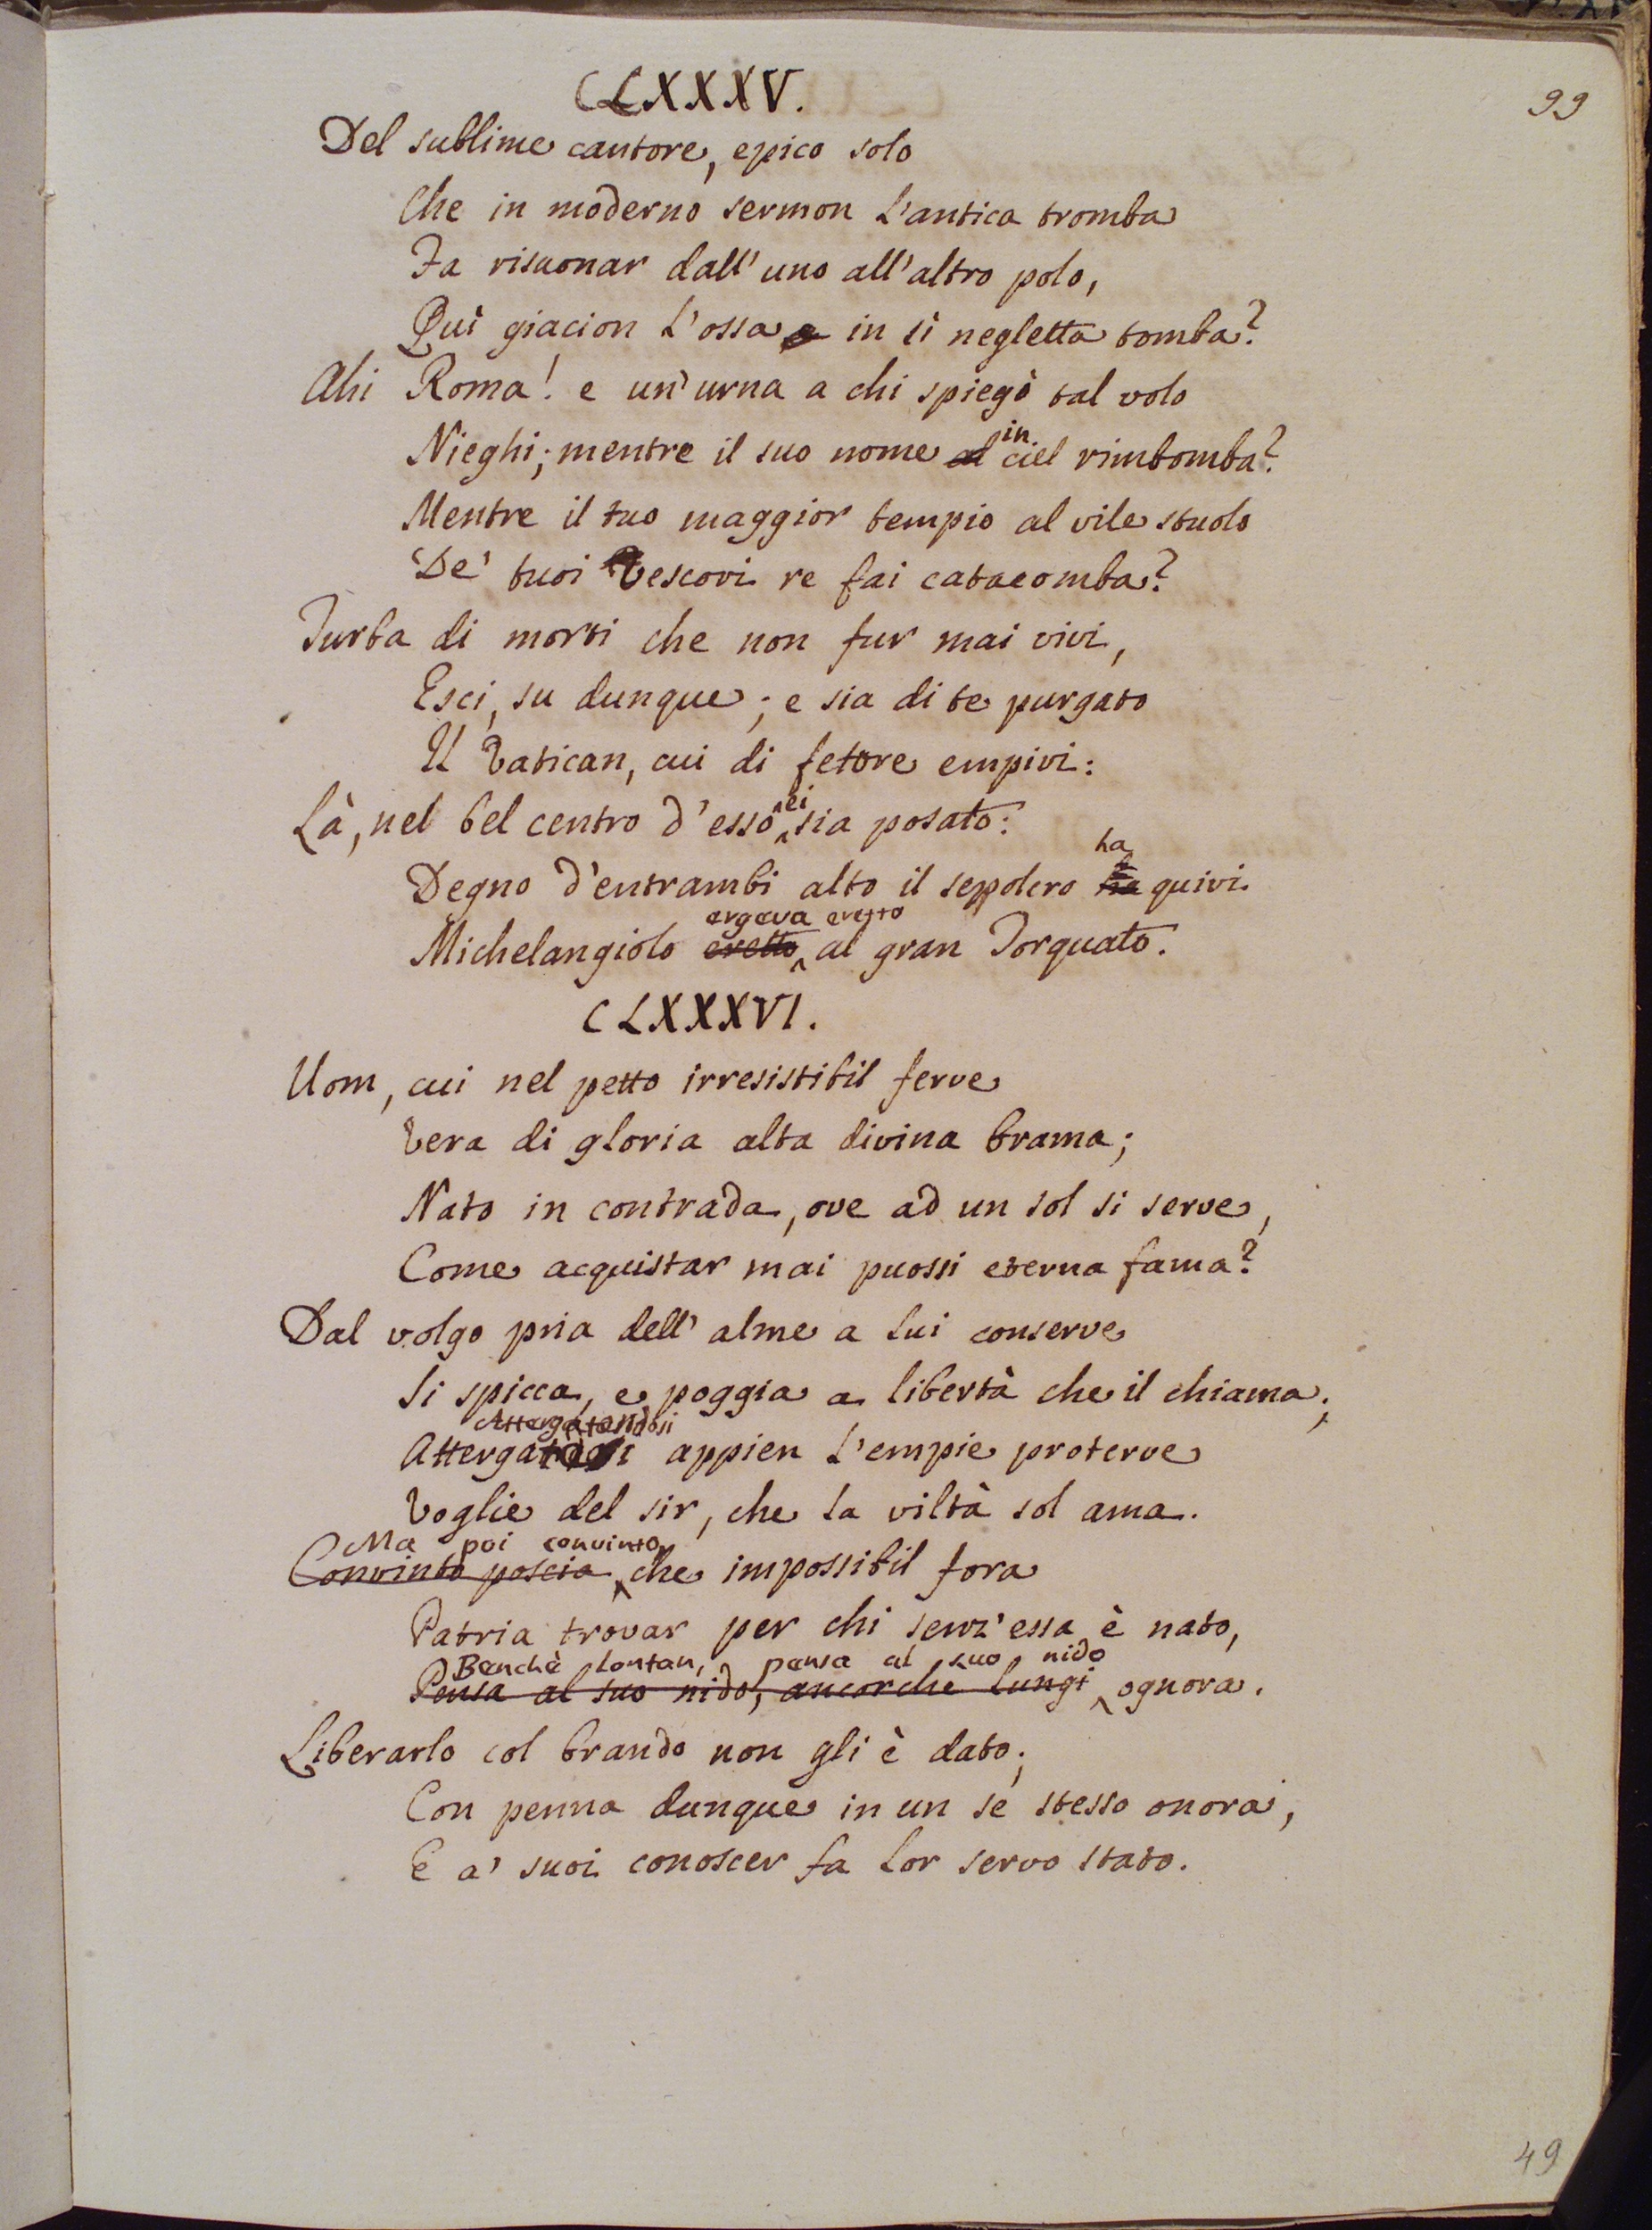 99
CLXXXV.
Del sublime cantore, epico solo
Che in moderno sermon l'antica tromba
Fa risuonar dall' uno all' altro polo,
Quì giacion l'ossa in sì negletta tomba?
Ahi Roma! e un' urna a chi spiegò tal volo
in
Nieghi; mentre il suo nome al ciel rimbomba?
Mentre il tuo maggior tempio al vile stuolo
De' tuoi Vescovi re fai catacomba?
Turba di morti che non fur mai vivi,
Esci, su dunque; e sia di te purgato
Il Vatican, cui di fetore empivi:
ei
Là, nel bel centro d'esso sia posato:
ha
Degno d'entrambi alto il sepolcro quivi
ergeva eretto
Michelangiolo eretto al gran Torquato.
CLXXXVI.
Uom, cui nel petto irresistibil ferve
Vera di gloria alta divina brama;
Nato in contrada, ove ad un sol si serve,
Come acquistar mai puossi eterna fama?
Dal volgo pria dell' alme a lui conserve
Si spicca, e poggia a libertà che il chiama;
Attergatosi appien l'empie proterve
Voglie del sir, che la viltà sol ama.
Ma poi convinto
Convinto poscia che impossibil fora
Patria trovar per chi senz' essa è nato,
Benchè lontan, pensa al suo nido
Pensa al suo nido, ancorche lungi ognora.
Liberarlo col brando non gli è dato;
Con penna dunque in un se stesso onora,
E a' suoi conoscer fa lor servo stato.
49